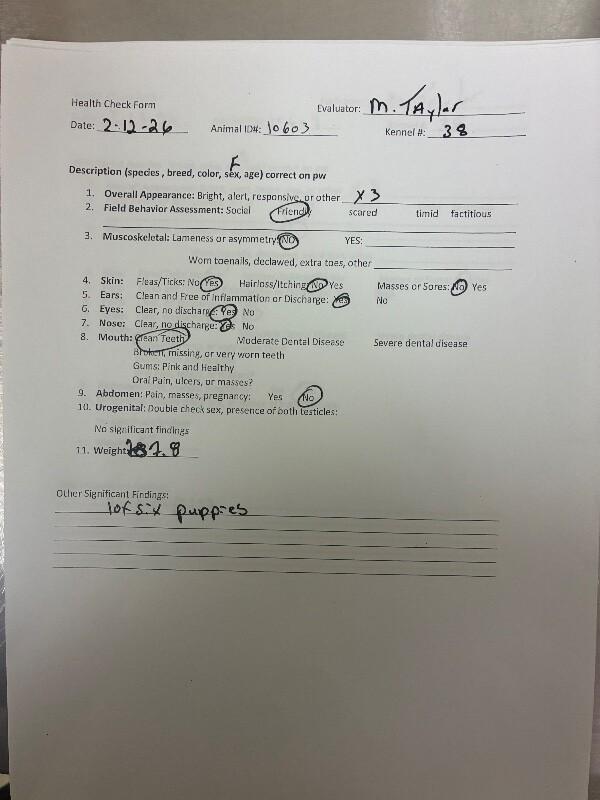 Health Check Form
Evaluator: M. TAylor
Date: 2-12-26 Animal ID#: 10603 Kennel #: 38
F
Description (species , breed, color, sex, age) correct on pw
1. Overall Appearance: Bright, alert, responsive, or other X3
2. Field Behavior Assessment: Social Friendly scared timid factitious
3. Muscoskeletal: Lameness or asymmetry: NO YES:
Worn toenails, declawed, extra toes, other
4. Skin: Fleas/Ticks: No Yes Hairloss/Itching: No Yes Masses or Sores: No Yes
5. Ears: Clean and Free of Inflammation or Discharge: Yes No
6. Eyes: Clear, no discharge: Yes No
7. Nose: Clear, no discharge: Yes No
8. Mouth: Clean Teeth Moderate Dental Disease Severe dental disease
Broken, missing, or very worn teeth
Gums: Pink and Healthy
Oral Pain, ulcers, or masses?
9. Abdomen: Pain, masses, pregnancy: Yes No
10. Urogenital: Double check sex, presence of both testicles:
No significant findings
11. Weight: 7.8
Other Significant Findings:
1 of six puppies